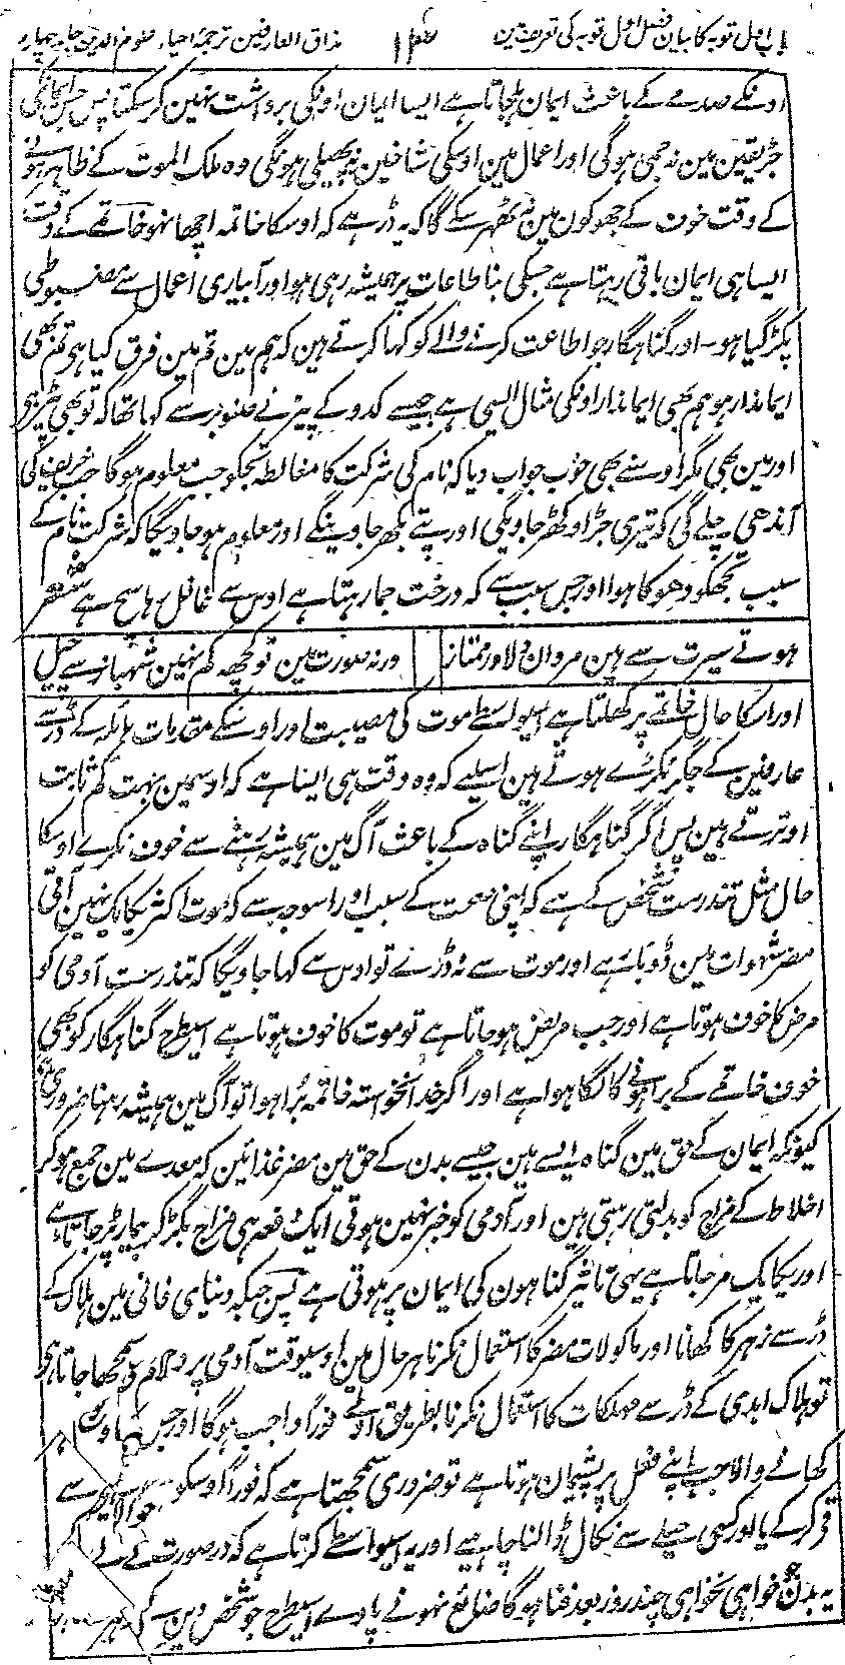 باب اول توبہ کا بیان فصل اول توبہ کی تعریف میں
۱۴
مذاق العارفین ترجمہ احیاء علوم الدین جلد چہارم
اونکے صدمے کے باعث ایمان ہلجاتا ہے ایسا ایمان اونکی برداشت نہین کرسکتا پس جس ایمانکی
جڑ یقین مین نہ جمی ہوگی اور اعمال مین اوسکی شاخین نہ پھیلی ہونگی وہ ملک الموت کے ظاہر ہونے
کے وقت خوف کے جھوکون مین نہ ٹھہر سکے گا کہ یہ ڈر ہے کہ اوسکا خاتمہ اچھا نہو خاتمے کے وقت
ایسا ہی ایمان باقی رہتا ہے جسکی بنا طاعات پر ہمیشہ رہی ہو اور آبیاری اعمال سے مضبوطی
پکڑ گیا ہو۔ اور گناہگار جو اطاعت کرنے والے کو کہا کرتے ہین کہ ہم مین تم مین فرق کیا ہی تم بھی
ایماندار ہو ہم بھی ایماندار اونکی مثال ایسی ہے جیسے کدو کے پیڑ نے صنوبر سے کہا تھا کہ تو بھی پیڑ ہی
اور مین بھی مگر اوسنے بھی خوب جواب دیا کہ نام کی شرکت کا مغالطہ تجکو جب معلوم ہوگا جب خریف کی
آندھی چلے گی کہ تیری جڑ اوکھڑ جاویگی اور پتے بکھر جاوینگے اور معلوم ہو جاویگا کہ شرکت نام کے
سبب تجھکو دھوکا ہوا اور جس سبب سے کہ درخت جما رہتا ہے اوس سے غافل رہا سچ ہے شعر
ہوتے سیرت سے ہین مردان دلاور ممتاز
ورنہ صورت مین تو کچھہ کم نہین شہباز سے چیل
اور اسکا حال خاتمے پر کھلتا ہے اسیواسطے موت کی مصیبت اور اوسکے مقدمات ہائلہ کے ڈر سے
عارفین کے جگر ٹکڑے ہوتے ہین اسلیے کہ وہ وقت ہی ایسا ہے کہ اوسمین بہت کم ثابت
اوترتے ہین پس اگر گناہگار اپنے گناہ کے باعث آگ مین ہمیشہ رہنے سے خوف نکرے اوسکا
حال مثل تندرست شخص کے ہے کہ اپنی صحت کے سبب اور اسوجہ سے کہ موت اکثر یکایک نہین آتی
مضر شہوات مین ڈوبا رہے اور موت سے نہ ڈرے تو اوس سے کہا جاویگا کہ تندرست آدمی کو
مرض کا خوف ہوتا ہے اور جب مریض ہوجاتا ہے تو موت کا خوف ہوتا ہے اسیطرح گناہگار کو بھی
خوف خاتمے کے برا ہونے کا لگا ہوا ہے اور اگر خدانخواستہ خاتمہ بُرا ہوا تو آگ مین ہمیشہ رہنا ضروری ہے
کیونکہ ایمان کے حق مین گناہ ایسے ہین جیسے بدن کے حق مین مضر غذائین کہ معدے مین جمع ہوکر
اخلاط کے مزاج کو بدلتی رہتی ہین اور آدمی کو خبر نہین ہوتی ایک دفعہ ہی مزاج بگڑ کر بیمار پڑ جاتا ہے
اور یکایک مرجاتا ہے یہی تاثیر گناہون کی ایمان پر ہوتی ہے پس جبکہ دنیای فانی مین ہلاک کے
ڈر سے زہر کا کھانا اور ماکولات مضر کا استعمال نکرنا ہر حال مین اوسیوقت آدمی پر لازم سمجھا جاتا ہی
تو ہلاک ابدی کے ڈر سے مہلکات کا استعمال نکرنا بطریق اولے فوراً واجب ہوگا اور جس
کھانے والا جب اپنے فعل پر پشیمان ہوتا ہے تو ضروری سمجھتا ہے کہ فوراً اوسکو سے
قے کرکے یا اور کسی حیلے سے نکال ڈالنا چاہیے اور یہ اسیواسطے کرتا ہے کہ در صورت
یہ بدن جو خواہی نخواہی چند روز بعد فنا ہوگا ضائع نہونے پاوے اسیطرح جو شخص دین کے